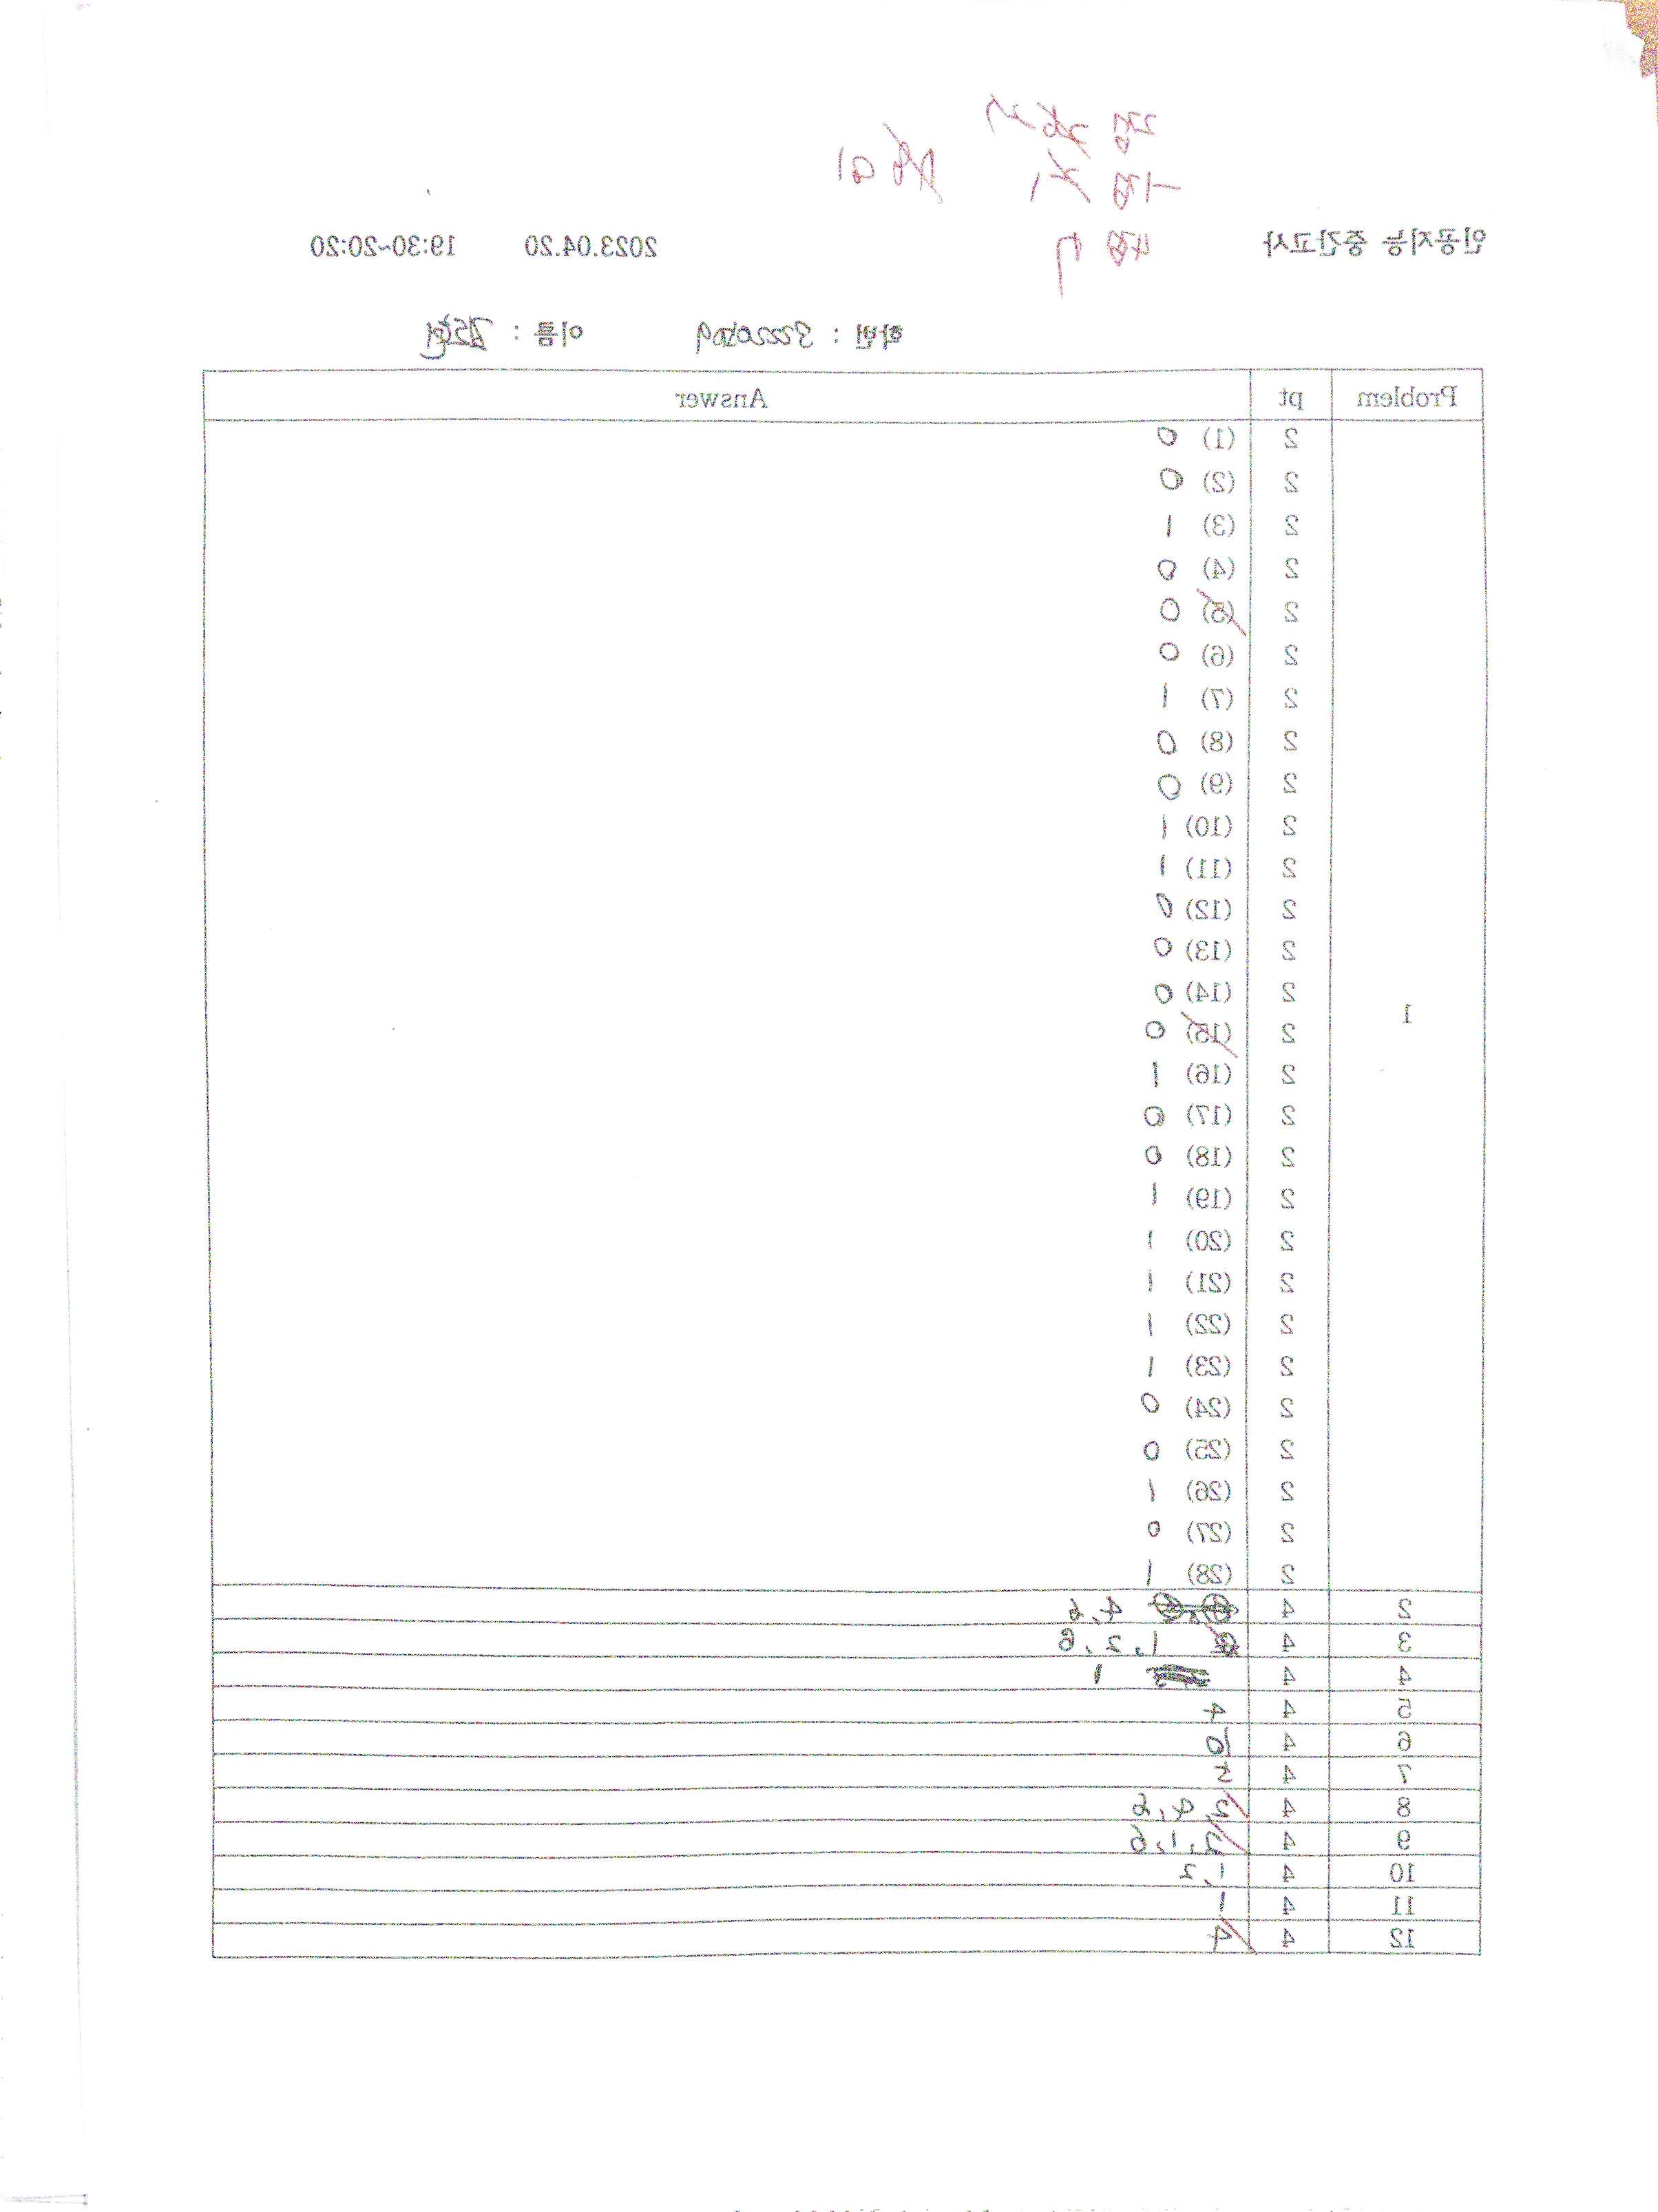 인공지능 중간고사 2023.04.20 19:30~20:20
학번 : 이름 :
Problem pt Answer
1
2 (1) 0
2 (2) 0
2 (3) 1
2 (4) 0
2 (5) 0
2 (6) 0
2 (7) 1
2 (8) 0
2 (9) 0
2 (10) 1
2 (11) 1
2 (12) 0
2 (13) 0
2 (14) 0
2 (15) 0
2 (16) 1
2 (17) 0
2 (18) 0
2 (19) 1
2 (20) 1
2 (21) 1
2 (22) 1
2 (23) 1
2 (24) 0
2 (25) 0
2 (26) 1
2 (27) 0
2 (28) 1
2 4 4, 6
3 4 1, 2, 6
4 4 1
5 4 4
6 4 10
7 4 5
8 4 2, 4, 6
9 4 2, 1, 6
10 4 1, 2
11 4 1
12 4 4